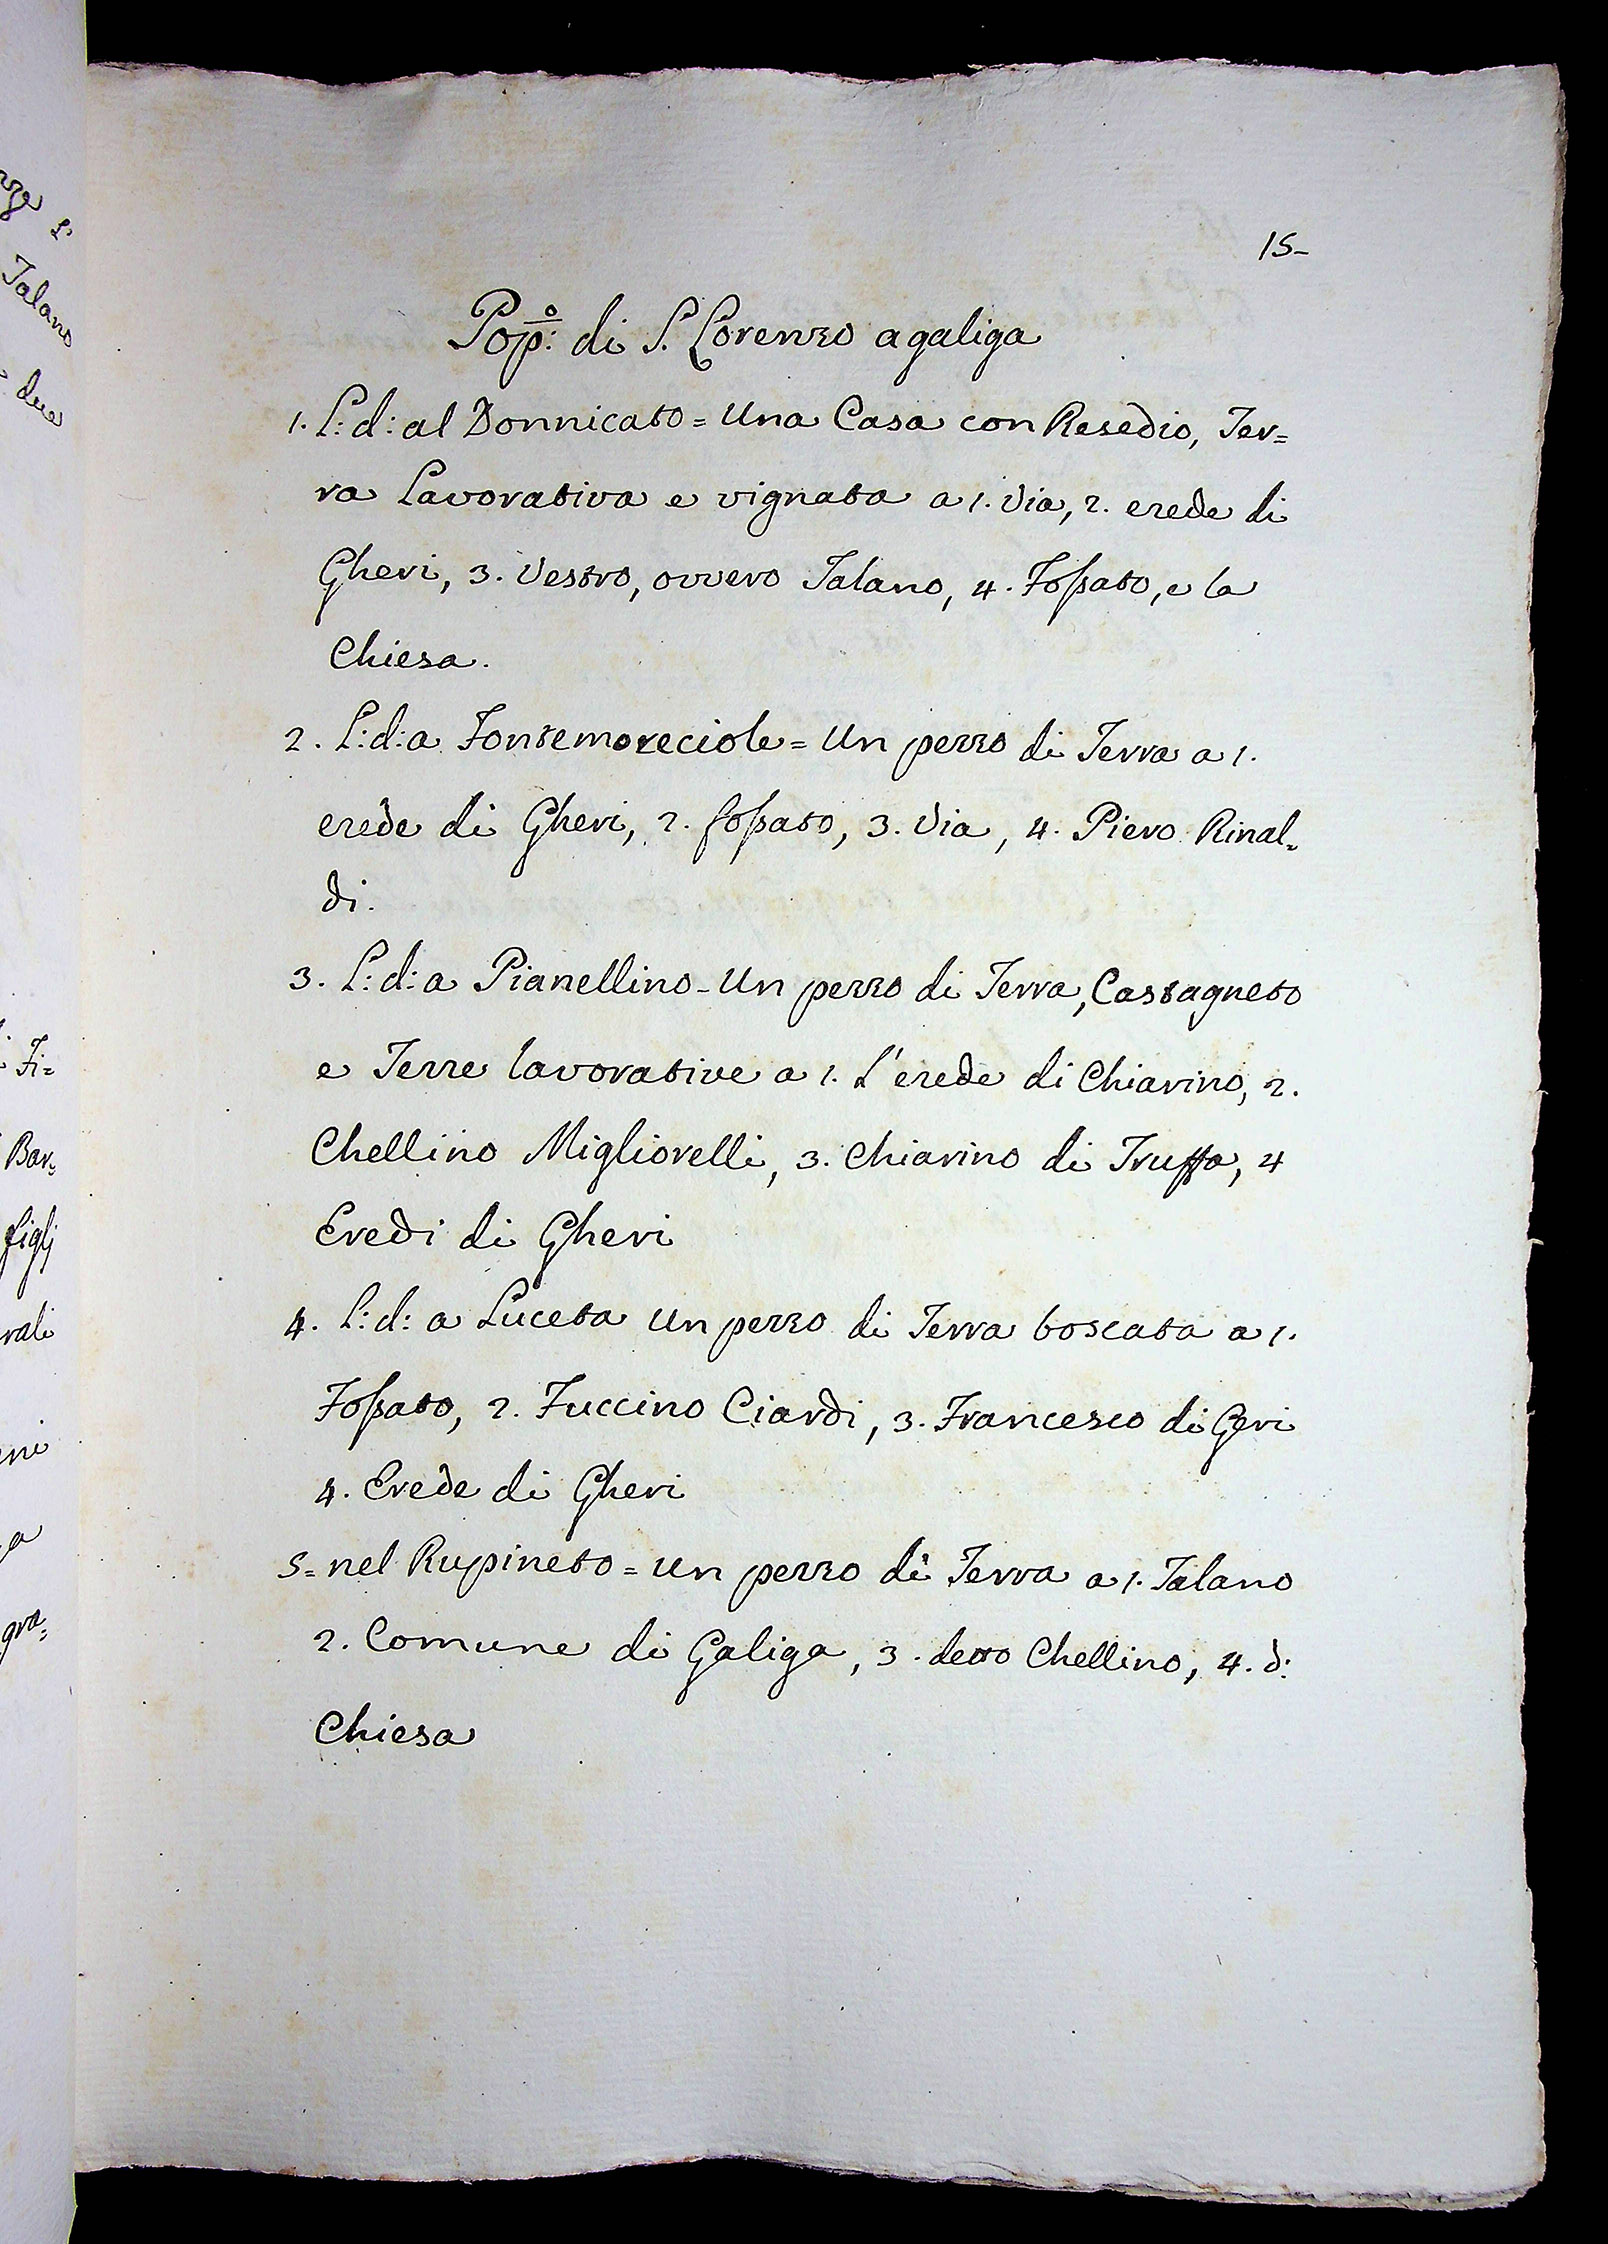 15-
Pop.º di S. Lorenzo a galiga
1. L: d: al Donnicato = Una Casa con Resedio, Ter=
ra Lavorativa e vignata a 1. Via, 2. erede di
Gheri, 3. Vestro, ovvero Talano, 4. Fossato, e la
Chiesa.
2. L: d: a Fontemoreciole = Un pezzo di Terra a 1.
erede di Gheri, 2. fossato, 3. Via, 4. Piero Rinal=
di.
3. L: d: a Pianellino - Un pezzo di Terra, Castagneto
e Terre lavorative a 1. L'erede di Chiarino, 2.
Chellino Migliorelli, 3. Chiarino di Truffa, 4
Eredi di Gheri
4. L: d: a Luceta Un pezzo di Terra boscata a 1.
Fossato, 2. Fuccino Ciardi, 3. Francesco di Geri
4. Erede di Gheri
5= nel Rupineto = Un pezzo di Terra a 1. Talano
2. Comune di Galiga, 3. detto Chellino, 4. d:
Chiesa
Talano
due
Fi=
Bar=
figlj
rali
gra=